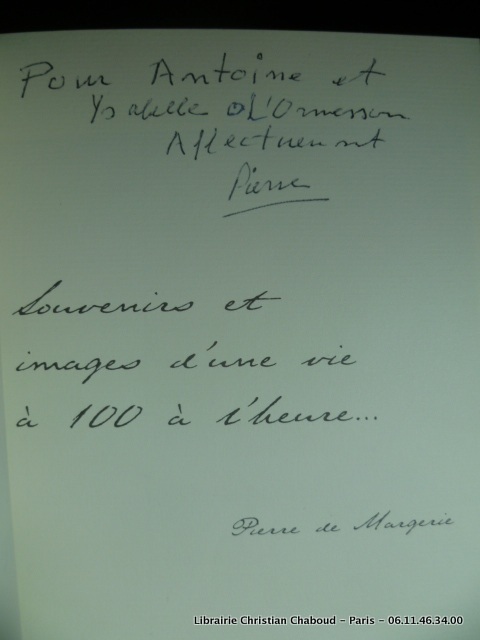 Pour Antoine et
Ysabelle d'Ormesson
Affectueusement
Pierre
Souvenirs et
images d'une vie
à 100 à l'heure...
Pierre de Margerie
Librairie Christian Chaboud - Paris - 06.11.46.34.00